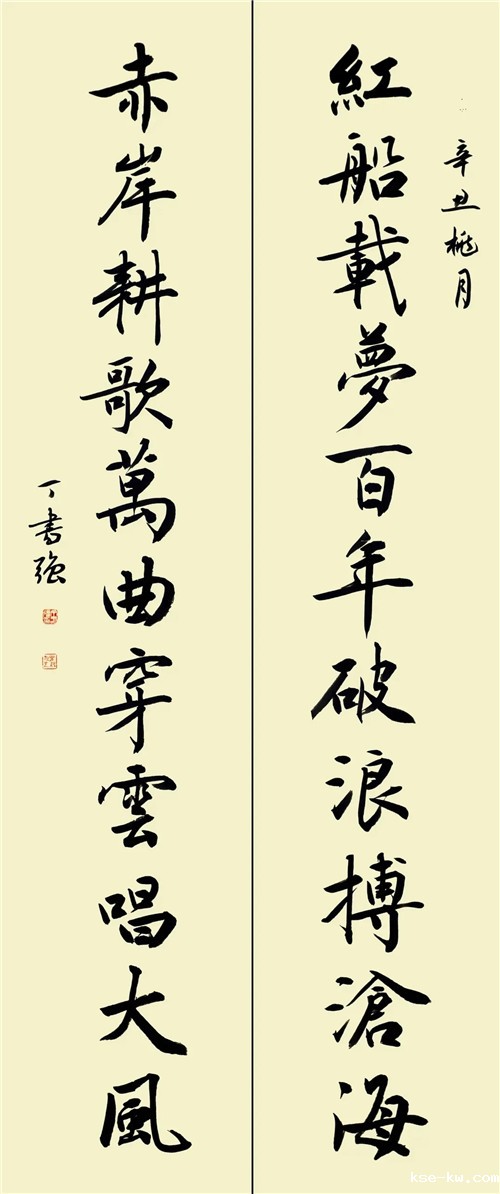 辛丑桃月
紅船載夢百年破浪搏滄海
赤岸耕歌萬曲穿雲唱大風
丁書強
kse-kw.com